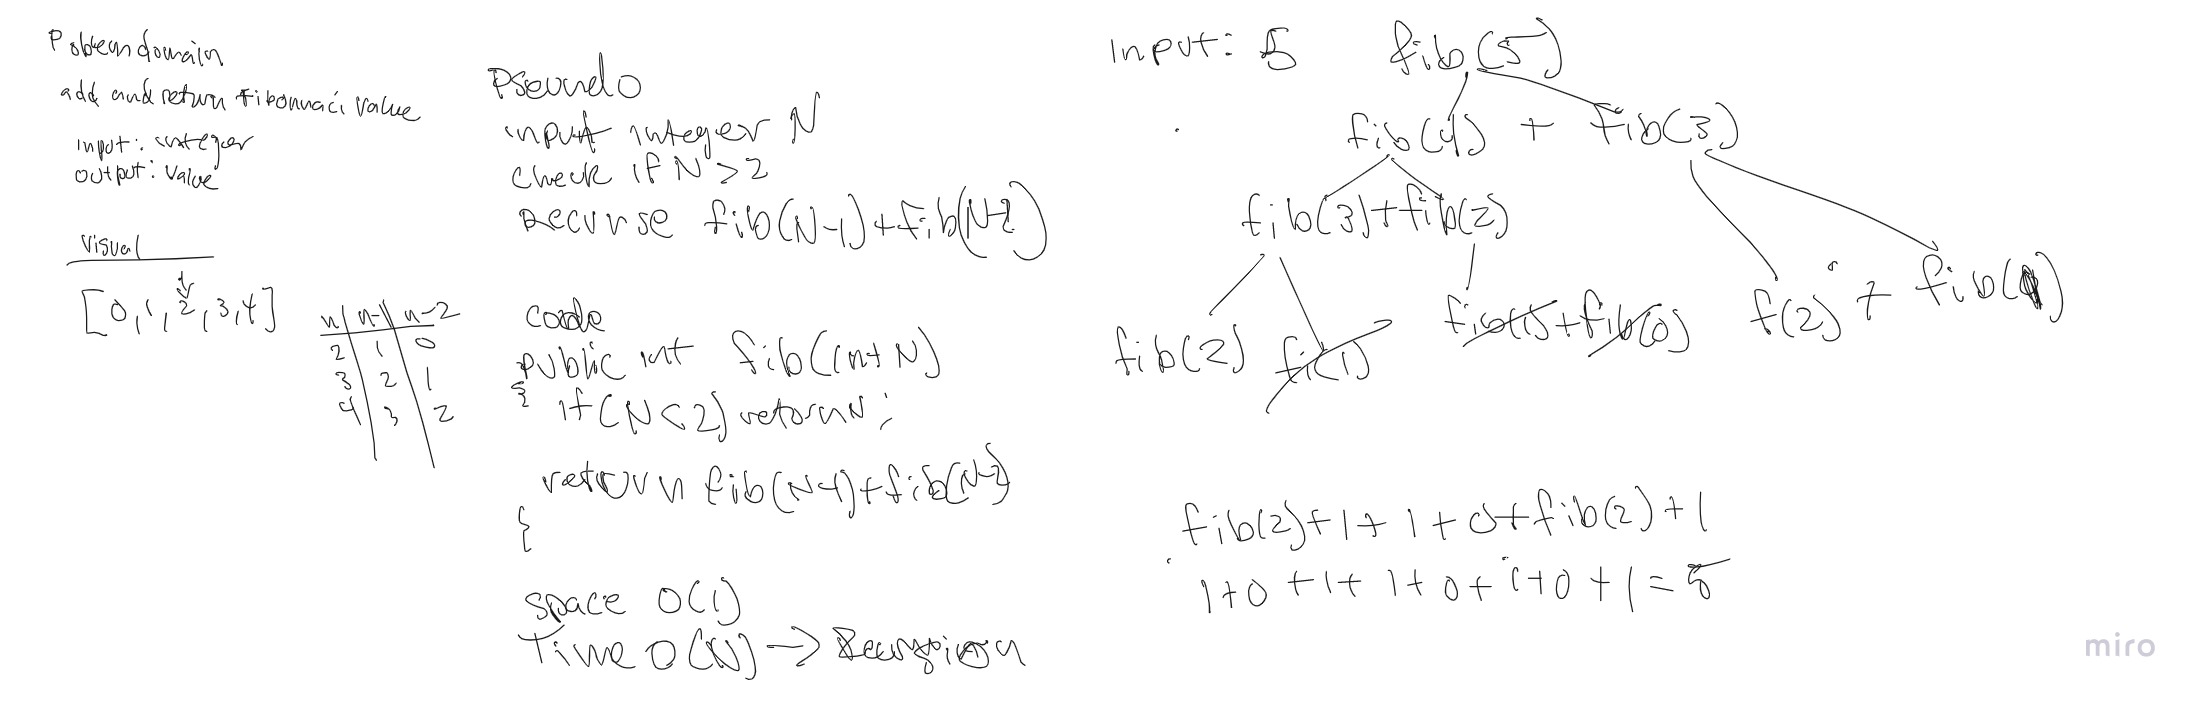 Pobeandomain
add and return Fibonnaci value
input: integer
output: value
visual
[0,1,2,3,4]
n n-1 n-2
2 1 0
3 2 1
4 3 2
Pseundo
input integer N
check if N > 2
Recurse fib(N-1)+fib(N-2)
code
public int fib(int N)
{
if(N<2) return N;
return fib(N-1)+fib(N-2)
{
space O(1)
Time O(N) → Recursion
input: 5
fib(5)
fib(4) + fib(3)
fib(3)+fib(2)
fib(2) fi(1) fib(1)+fib(0) f(2) + fib(1)
fib(2)+1+1+0+fib(2)+1
1+0+1+1+0+1+0+1=5
miro